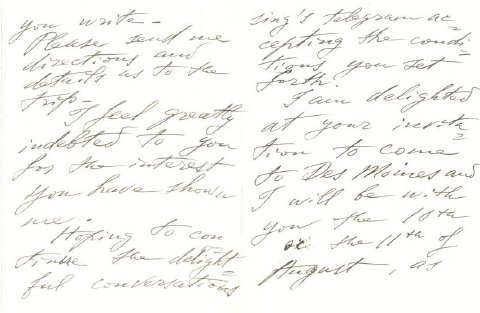 you write —
Please send me
directions and
details as to the
trip —
I feel greatly
indebted to you
for the interest
you have shown
me.
Hoping to con
tinue the delight=
ful conversations
sing's telegram ac=
cepting the condi=
tions you set
forth.
I am delighted
at your invita=
tion to come
to Des Moines and
I will be with
you the 10th
or the 11th of
August, as